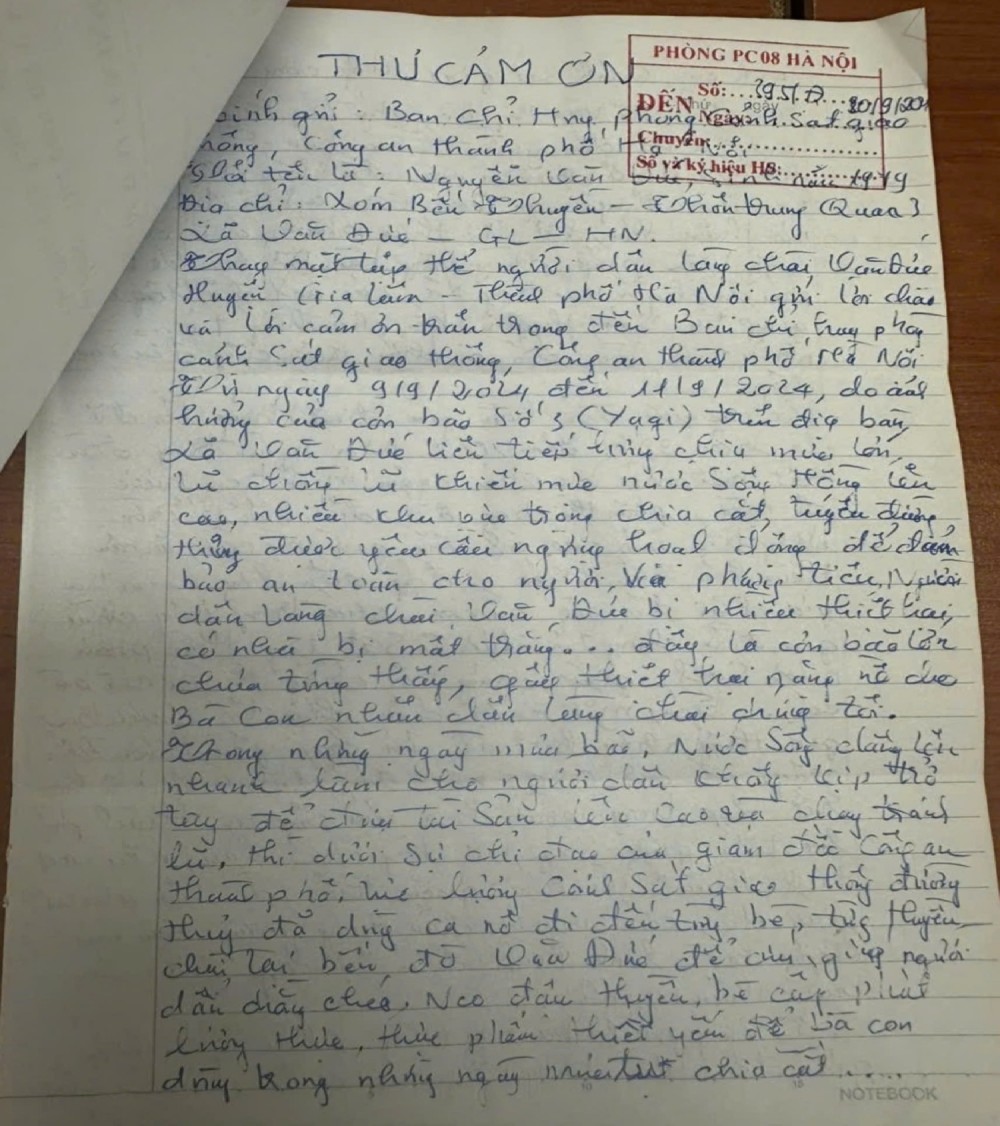 THƯ CẢM ƠN
PHÒNG PC08 HÀ NỘI
ĐẾN
Số:
Ngày
30/9/20
Chuyển:
Số và ký hiệu HS:
Kính gửi: Ban chỉ Huy phòng Cảnh sát giao
thông, Công an thành phố Hà Nội
tên là: Nguyễn Văn sinh năm
Địa chỉ: Xóm Bến Thuyền - Thôn trung Quan 3
Xã Văn Đức - GL - HN.
Thay mặt tập thể người dân làng chài Văn Đức
Huyện Gia Lâm - Thành phố Hà Nội gửi lời chào
và lời cảm ơn trân trọng đến Ban chỉ huy phòng
cảnh sát giao thông, Công an thành phố Hà Nội
Từ ngày 9/9/2024 đến 11/9/2024, do ảnh
hưởng của cơn bão số 3 (Yagi) trên địa bàn
xã Văn Đức liên tiếp hứng chịu mưa lớn,
lũ chồng lũ khiến mực nước Sông Hồng lên
cao, nhiều khu vực trong chia cắt, tuyến đường
thủy được yêu cầu ngừng hoạt động để đảm
bảo an toàn cho người, và phương tiện, Người
dân làng chài Văn Đức bị nhiều thiệt hại,
có nhà bị mất trắng... đây là cơn bão lớn
chưa từng thấy, gây thiệt hại nặng nề cho
Bà Con nhân dân làng chài chúng tôi.
Trong những ngày mưa bão, nước sông dâng lên
nhanh làm cho người dân không kịp trở
tay để đưa tài sản lên cao và chạy tránh
lũ, thì dưới sự chỉ đạo của giám đốc Công an
thành phố, lực lượng Cảnh sát giao thông đường
thủy đã dùng ca nô đi đến từng bè, từng thuyền
chài tại bến đò Văn Đức để giúp người
dân dây chéo, Neo đậu thuyền, bè cấp phát
lương thực, thực phẩm thiết yếu để bà con
dùng trong những ngày chia cắt.....
NOTEBOOK